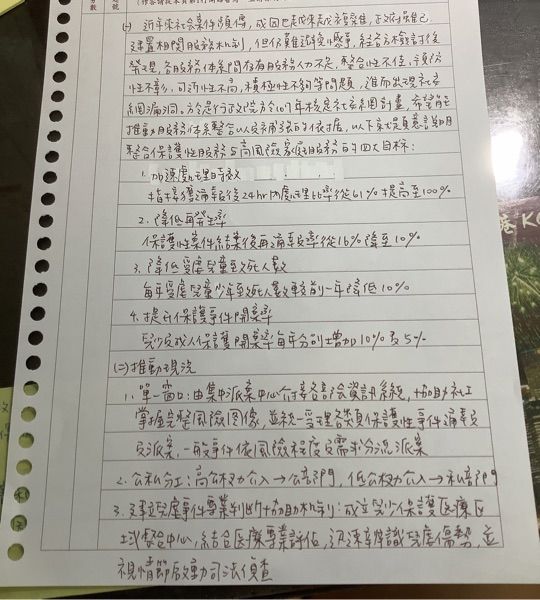 (一) 近年來社會案件頻傳，成因已越來越複雜，政府雖已
建置相關服務機制，但仍難避免憾事，經各方檢討後
發現，各服務體系間存有服務人力不足，整合性不佳，預防
性不彰，可近性不高，積極性不夠等問題，進而出現社安
網漏洞。於是行政院方於107年核定社安網計畫，希望能
推動服務體系整合以及布建的依據，以下就題意說明
整合保護性服務與高風險家庭服務的四大目標：
1. 加速處理時效
指接獲通報後24hr內處理比率從61%提高至100%
2. 降低再發生率
保護性案件結案後再通報率從16%降至10%
3. 降低受虐兒童至死人數
每年受虐兒童少年至死人數較前一年降低10%
4. 提升保護事件開案率
兒少及成人保護開案率每年分別增加10%及5%
(二) 推動現況
1. 單一窗口：由集中派案中心介接各部會資訊系統，協助社工
掌握完整風險圖像，並統一受理各類保護性事件通報
及派案，一般事件依風險程度及需求分流派案
2. 公私分工：高公權力介入→公部門，低公權力介入→私部門
3. 建立兒虐事件專業判斷協助機制：成立兒少保護醫療區
域整合中心，結合醫療專業評估，迅速辨識兒虐傷勢，並
視情節啟動司法偵查